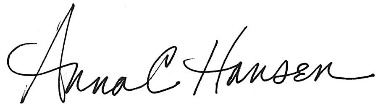 Anna C Hansen